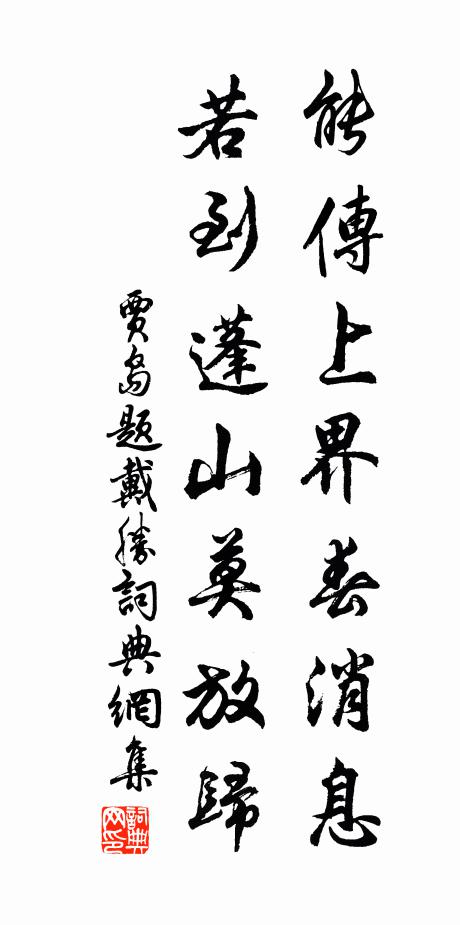 能傳上界春消息
若到蓬山莫放歸
賈島題戴勝詞典網集
詞典网印